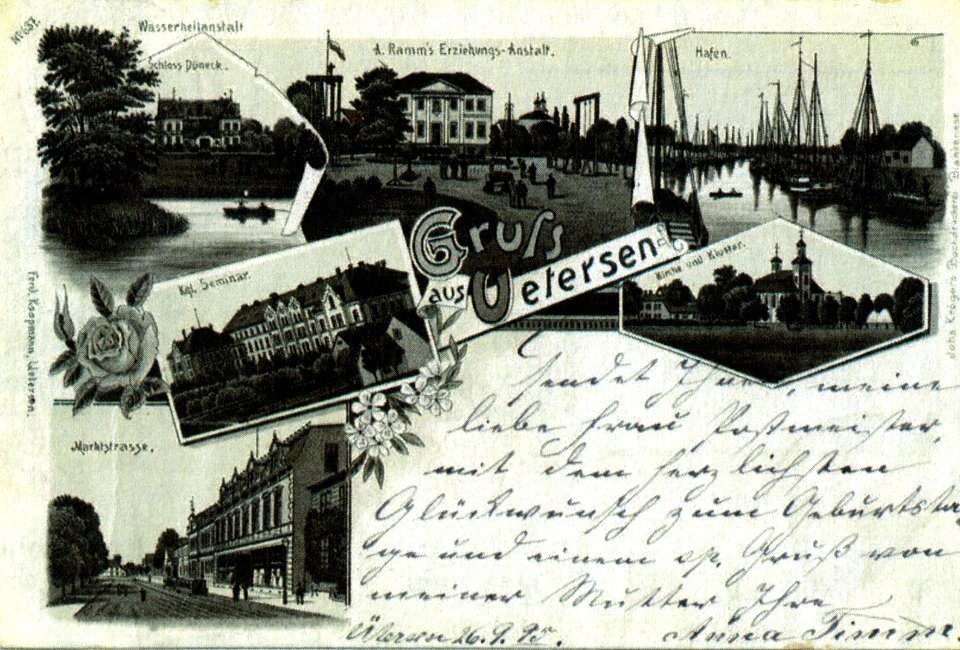 No 437.
Wasserheilanstalt
Schloss Düneck.
A. Ramm's Erziehungs-Anstalt.
Hafen.
Gruss
aus Uetersen
Kirche und Kloster.
Kgl. Seminar.
Marktstrasse.
Ferd. Koopmann, Uetersen.
Johs. Kröger's Buchdruckerei Blankenese
sendet Ihnen, meine
liebe Frau Postmeister,
mit dem herzlichsten
Glückwunsch zum Geburtsta-
ge und einem Gruß von
meiner Mutter Ihre
26. 9. 95.
Anna Timm.